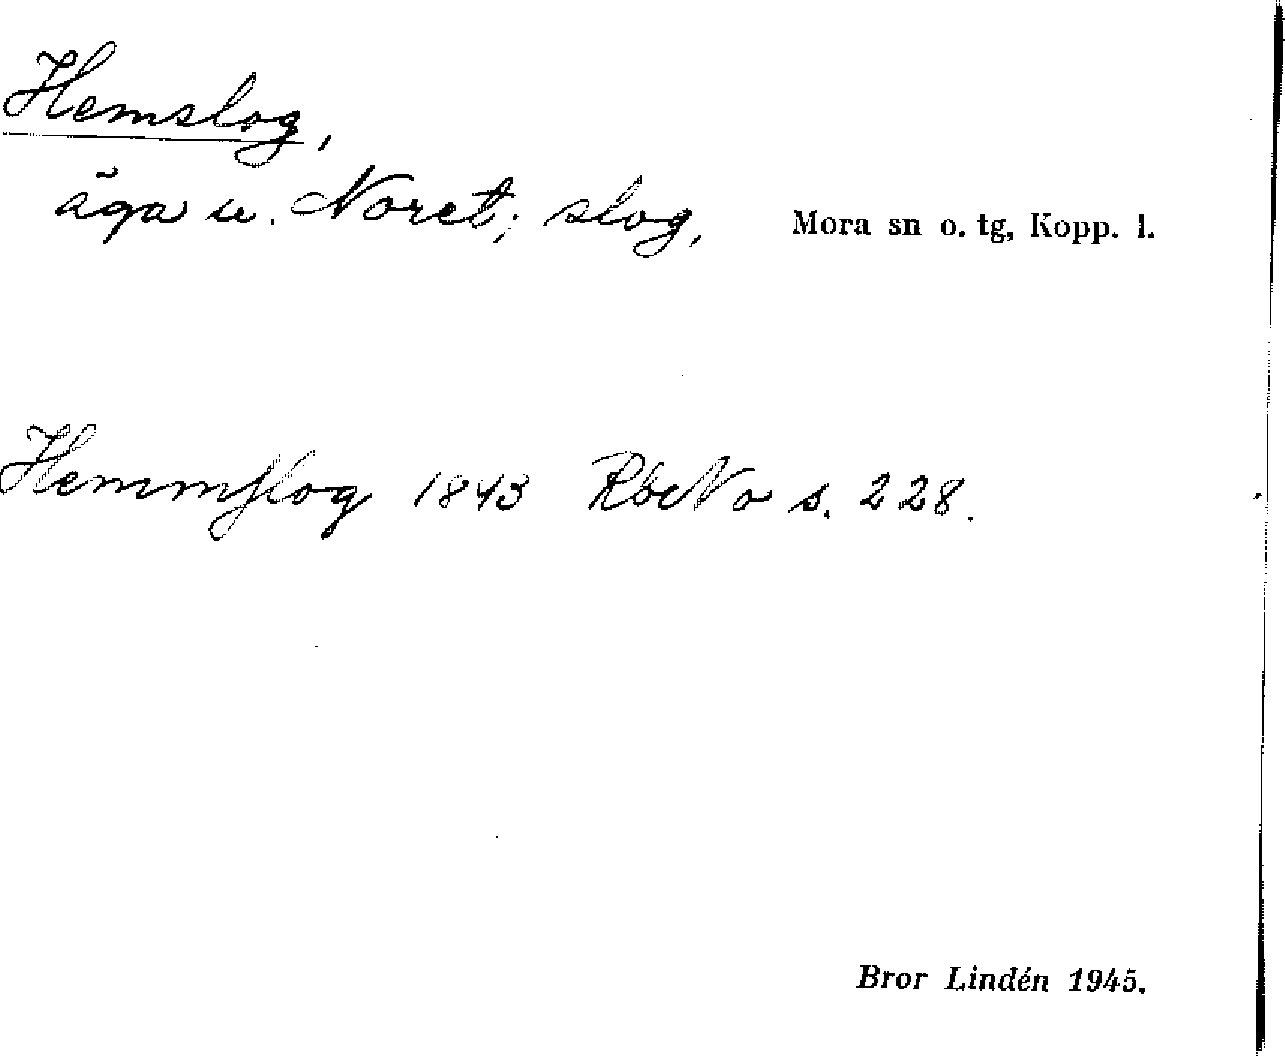 Hemslog,
äga u. Noret; slog, Mora sn o. tg, Kopp. l.
Hemmslog 1843 s. 228.
Bror Lindén 1945.